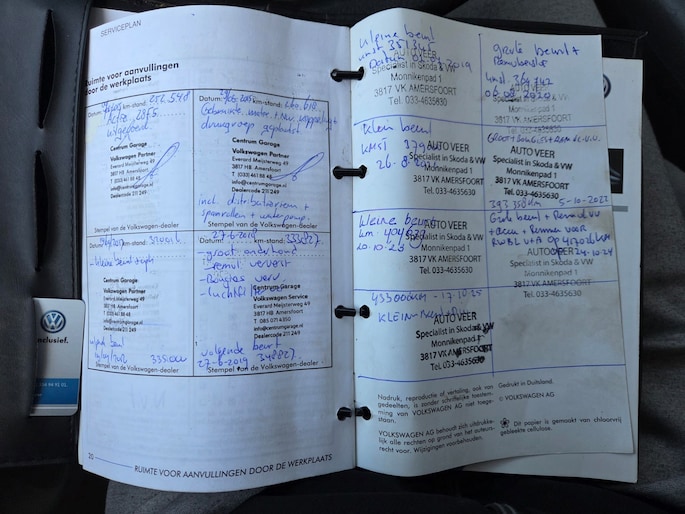 SERVICEPLAN
Ruimte voor aanvullingen
door de werkplaats
Datum: km-stand: 252.548
Actie
uitgevoerd.
Centrum Garage
Volkswagen Partner
Everard Meijsterweg 49
3817 HB Amersfoort
T (033) 461 88 48
info@centrumgarage.nl
Dealercode 211 249
Stempel van de Volkswagen-dealer
Datum: km-stand:
geplaatst
Centrum Garage
Volkswagen Partner
Everard Meijsterweg 49
3817 HB Amersfoort
T (033) 461 88 48
info@centrumgarage.nl
Dealercode 211 249
incl distributieriem +
spanrollen + waterpomp.
Stempel van de Volkswagen-dealer
Datum: km-stand:
- kleine beurt
Centrum Garage
Volkswagen Partner
Everard Meijsterweg 49
3817 HB Amersfoort
T (033) 461 88 48
info@centrumgarage.nl
Dealercode 211 249
335000
Stempel van de Volkswagen-dealer
Datum: 27-6-2018 km-stand: 333827
- groot onderhoud
- Remvl ververst
- Bougies verv.
- luchtfilter
Centrum Garage
Volkswagen Service
Everard Meijsterweg 49
3817 HB Amersfoort
T 085 071 4350
info@centrumgarage.nl
Dealercode 211 249
volgende beurt
27-6-2019 348827.
Stempel van de Volkswagen-dealer
20 RUIMTE VOOR AANVULLINGEN DOOR DE WERKPLAATS
kleine beurt
kmst 351345
Datum 2019
AUTO VEER
Specialist in Skoda & VW
Monnikenpad 1
3817 VK AMERSFOORT
Tel. 033-4635630
grote beurt +
kmst 364742
06.08.2020
Klein beurt
KMST
26-8-
AUTO VEER
Specialist in Skoda & VW
Monnikenpad 1
3817 VK AMERSFOORT
Tel. 033-4635630
AUTO VEER
Specialist in Skoda & VW
Monnikenpad 1
3817 VK AMERSFOORT
Tel. 033-4635630
393350km 5-10-2022
Kleine beurt
km. 404838
20.10.23
AUTO VEER
Specialist in Skoda & VW
Monnikenpad 1
3817 VK AMERSFOORT
Tel. 033-4635630
Grote beurt +
AUTO VEER
Specialist in Skoda & VW
Monnikenpad 1
3817 VK AMERSFOORT
Tel. 033-4635630
433000km - 17.10.25
KLEIN-BEURT
AUTO VEER
Specialist in Skoda & VW
Monnikenpad 1
3817 VK AMERSFOORT
Tel. 033-4635630
Nadruk, reproductie of vertaling, ook van
gedeelten, is zonder schriftelijke toestem-
ming van VOLKSWAGEN AG niet toege-
staan.
VOLKSWAGEN AG behoudt zich uitdrukke-
lijk alle rechten op grond van het auteurs-
recht voor. Wijzigingen voorbehouden.
Gedrukt in Duitsland.
© VOLKSWAGEN AG
Dit papier is gemaakt van chloorvrij
gebleekte cellulose.